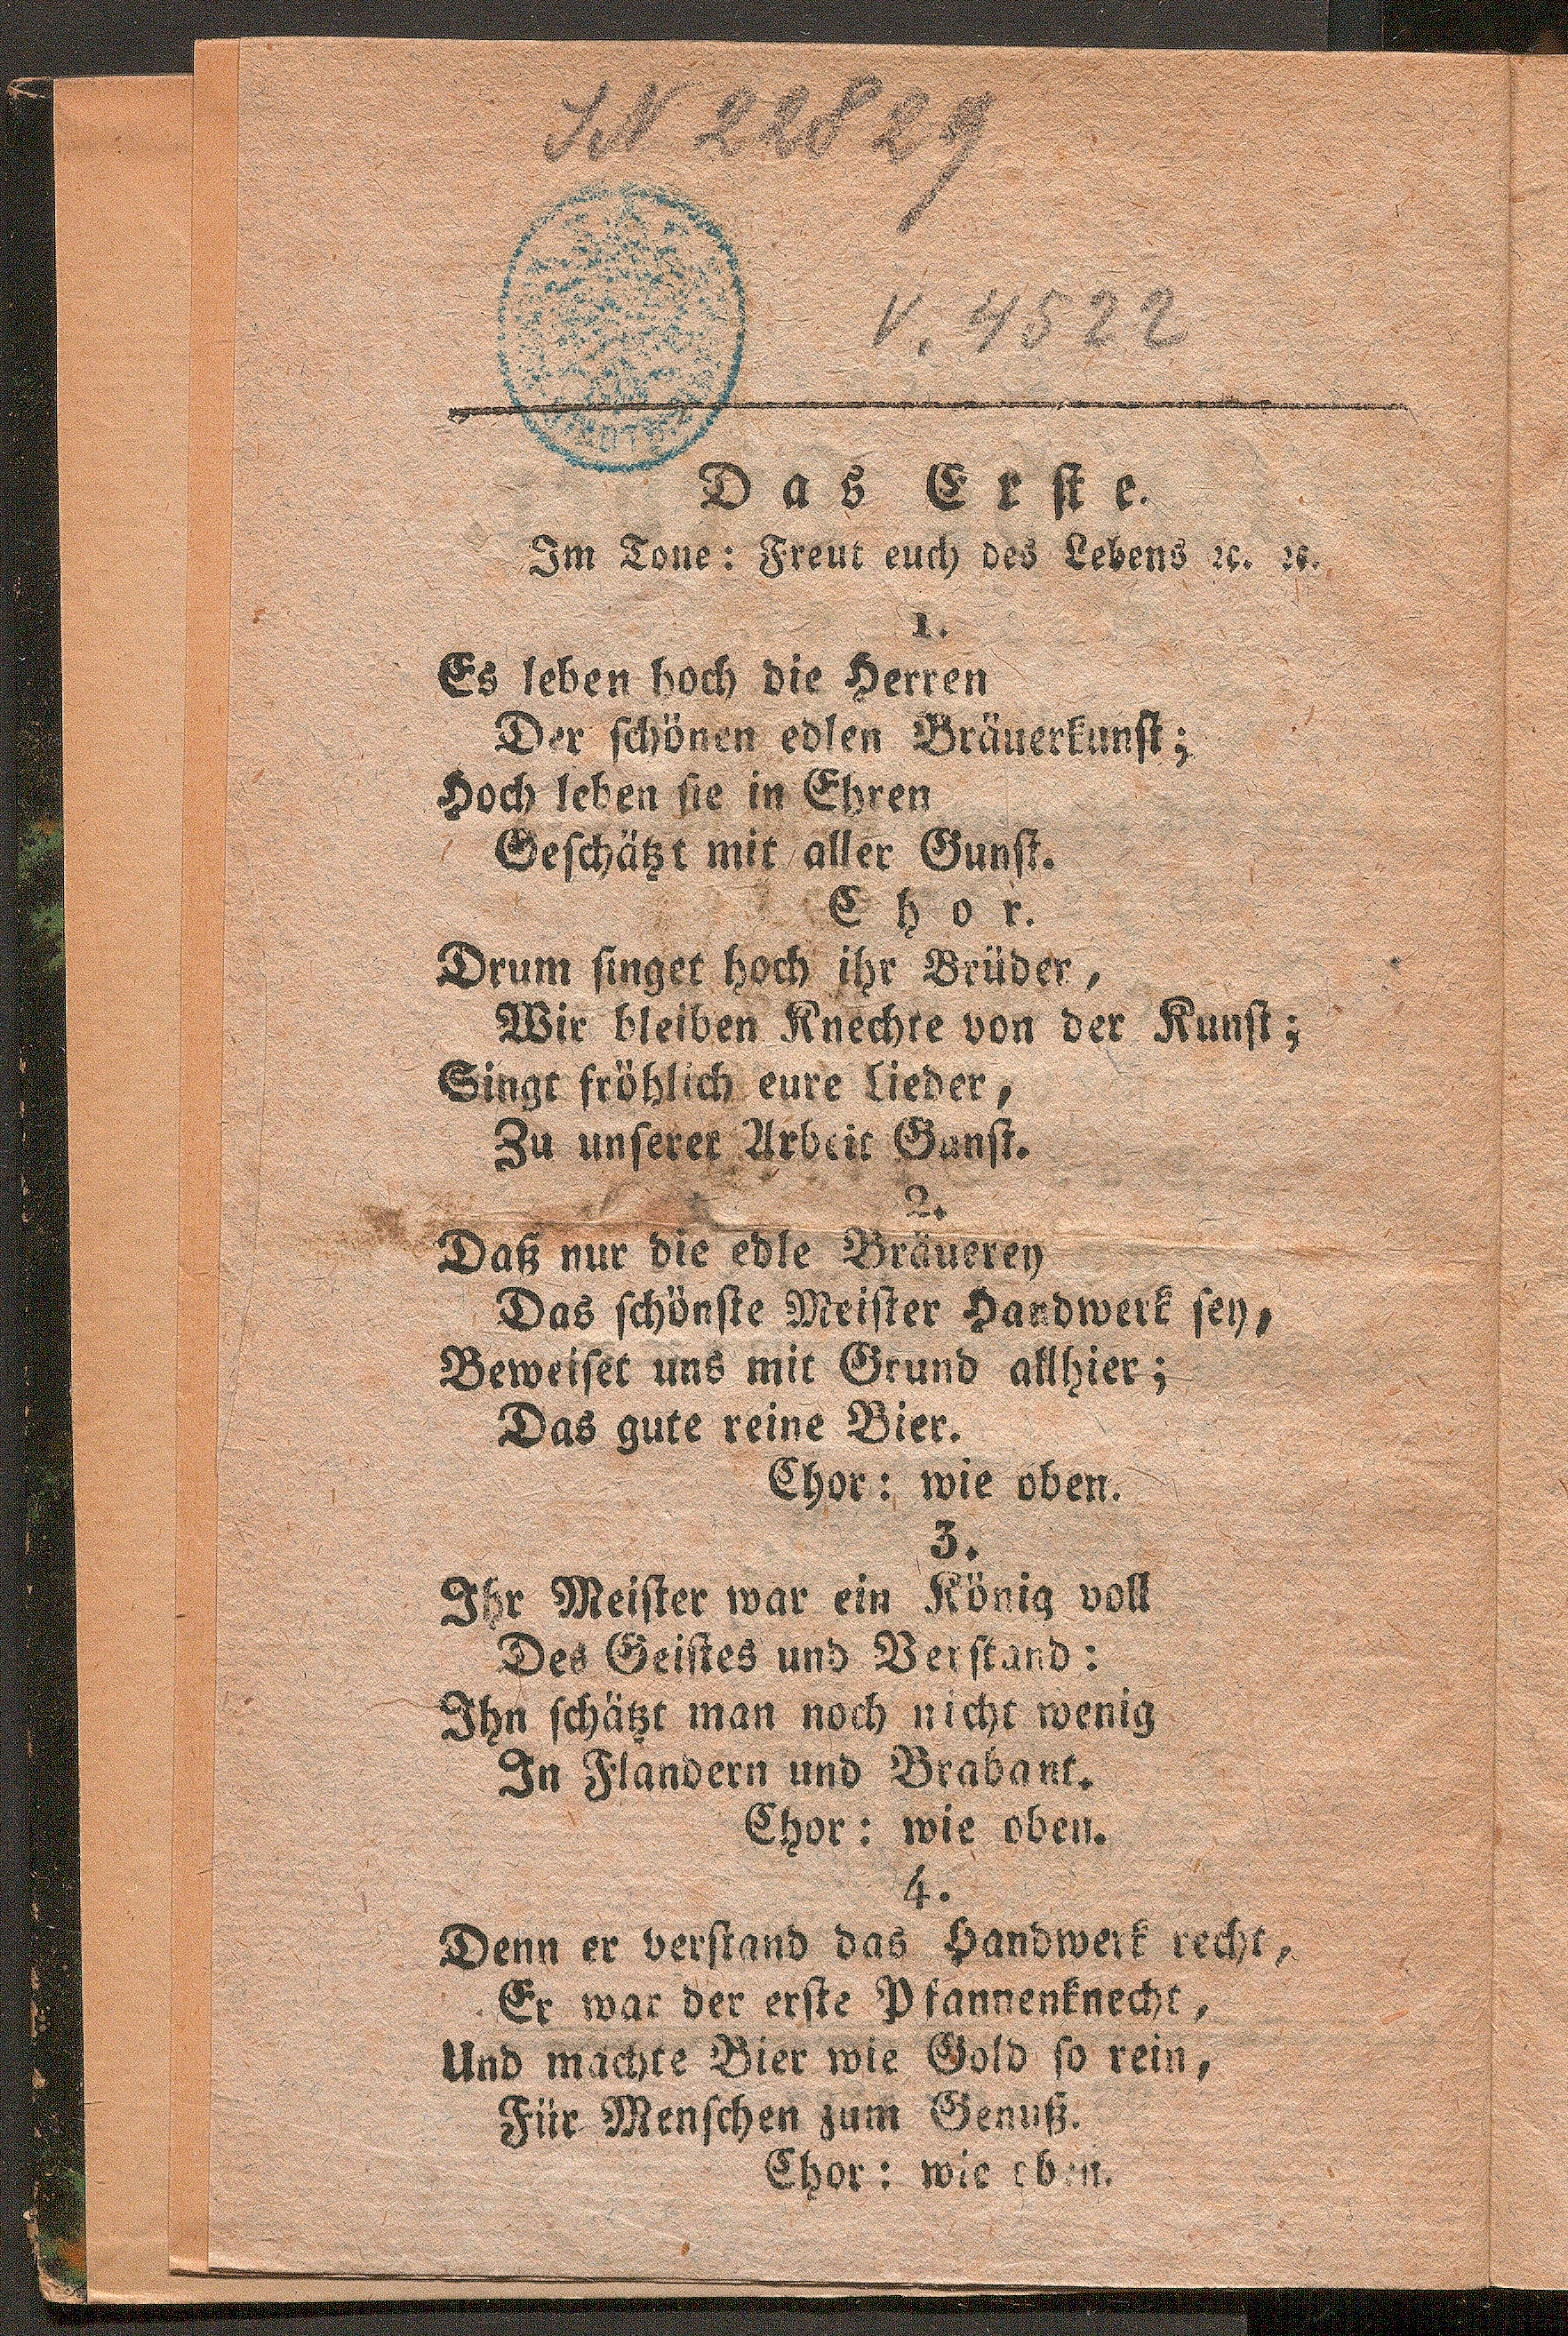 22829
V. 4522
Das Erste.
Im Tone: Freut euch des Lebens ꝛc. ꝛc.
1.
Es leben hoch die Herren
Der schönen edlen Bräuerkunst;
Hoch leben sie in Ehren
Geschätzt mit aller Gunst.
Chor.
Drum singet hoch ihr Brüder,
Wir bleiben Knechte von der Kunst;
Singt fröhlich eure Lieder,
Zu unserer Arbeit Gunst.
2.
Daß nur die edle Bräuerey
Das schönste Meister Handwerk sey,
Beweiset uns mit Grund allhier;
Das gute reine Bier.
Chor: wie oben.
3.
Ihr Meister war ein König voll
Des Geistes und Verstand:
Ihn schätzt man noch nicht wenig
In Flandern und Brabant.
Chor: wie oben.
4.
Denn er verstand das Handwerk recht,
Er war der erste Pfannenknecht,
Und machte Bier wie Gold so rein,
Für Menschen zum Genuß.
Chor: wie oben.